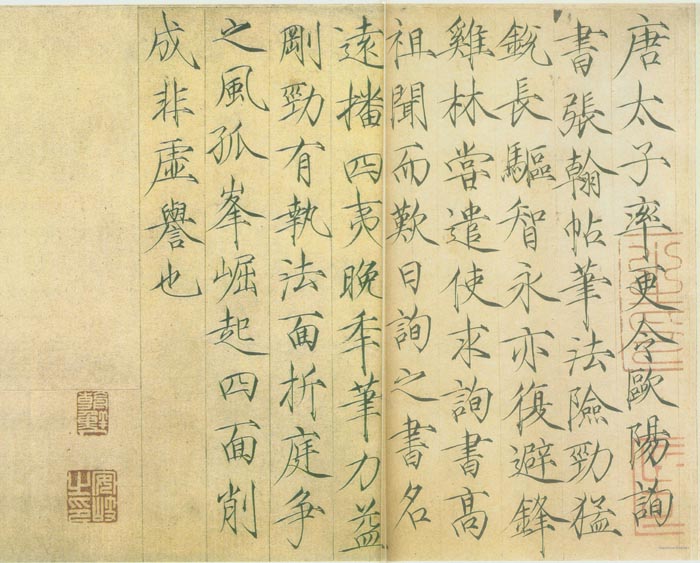 唐太子率更令歐陽詢
書張翰帖筆法險勁猛
銳長驅智永亦復避鋒
雞林嘗遣使求詢書高
祖聞而歎曰詢之書名
遠播四夷晚年筆力益
剛勁有執法面折庭争
之風孤峯崛起四面削
成非虛譽也